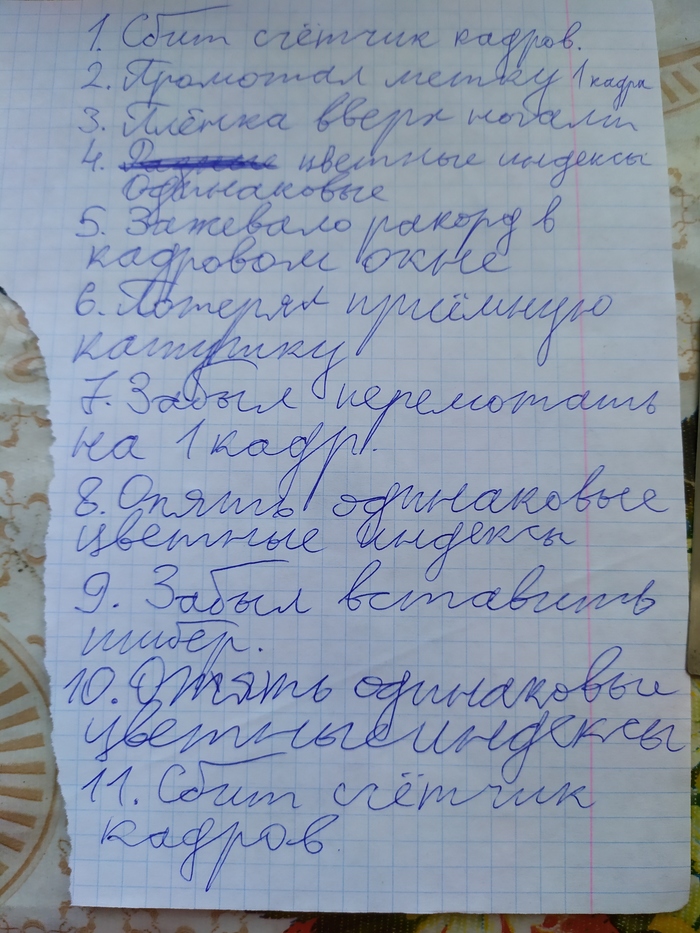 1. Сбит счётчик кадров.
2. Промотал метку 1 кадра
3. Плёнка вверх ногами
4. цветные индексы
одинаковые
5. Зажевало ракорд в
кадровом окне
6. Потерял приёмную
катушку
7. Забыл перемотать
на 1 кадр.
8. Опять одинаковые
цветные индексы
9. Забыл вставить
шибер.
10. Опять одинаковые
цветные индексы
11. Сбит счётчик
кадров